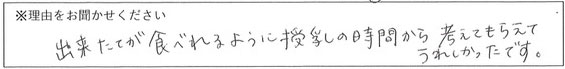 ※理由をお聞かせください
出来たてが食べれるように授乳の時間から考えてもらえて
うれしかったです。